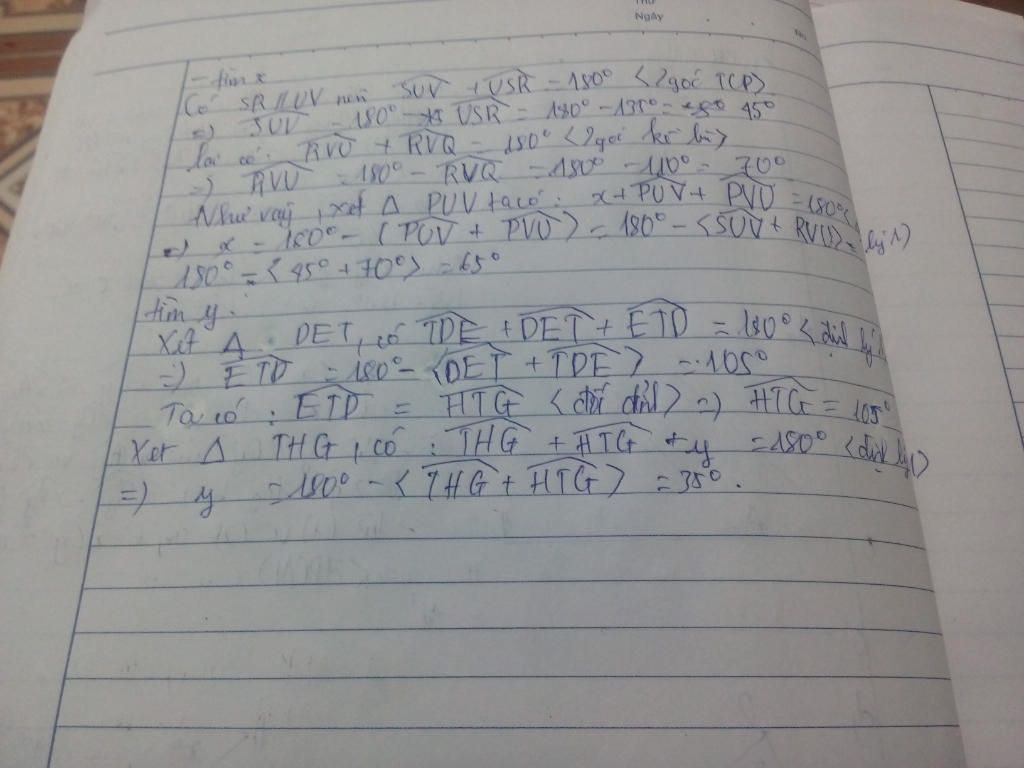 Thứ
Ngày
No
- tìm x
Có SR // UV nên SUV + USR = 180° <2 góc TCP>
=> SUV = 180° - USR = 180° - 135° = 45°
lại có: RVU + RVQ = 180° <2 góc kề bù>
=> RVU = 180° - RVQ = 180° - 110° = 70°
Như vậy, xét Δ PUV ta có: x + PUV + PVU = 180° <
=> x = 180° - (PUV + PVU) = 180° - <SUV + RVU> = lý 1)
180° = <45° + 70°> = 65°
tìm y.
Xét Δ DET, có TDE + DET + ETD = 180° <định lý
=> ETD = 180° - <DET + TDE> = 105°
Ta có: ETD = HTG <đối đỉnh> => HTG = 105°
Xét Δ THG, có: THG + HTG + y = 180° <định lý 1)
=> y = 180° - <THG + HTG> = 35°.